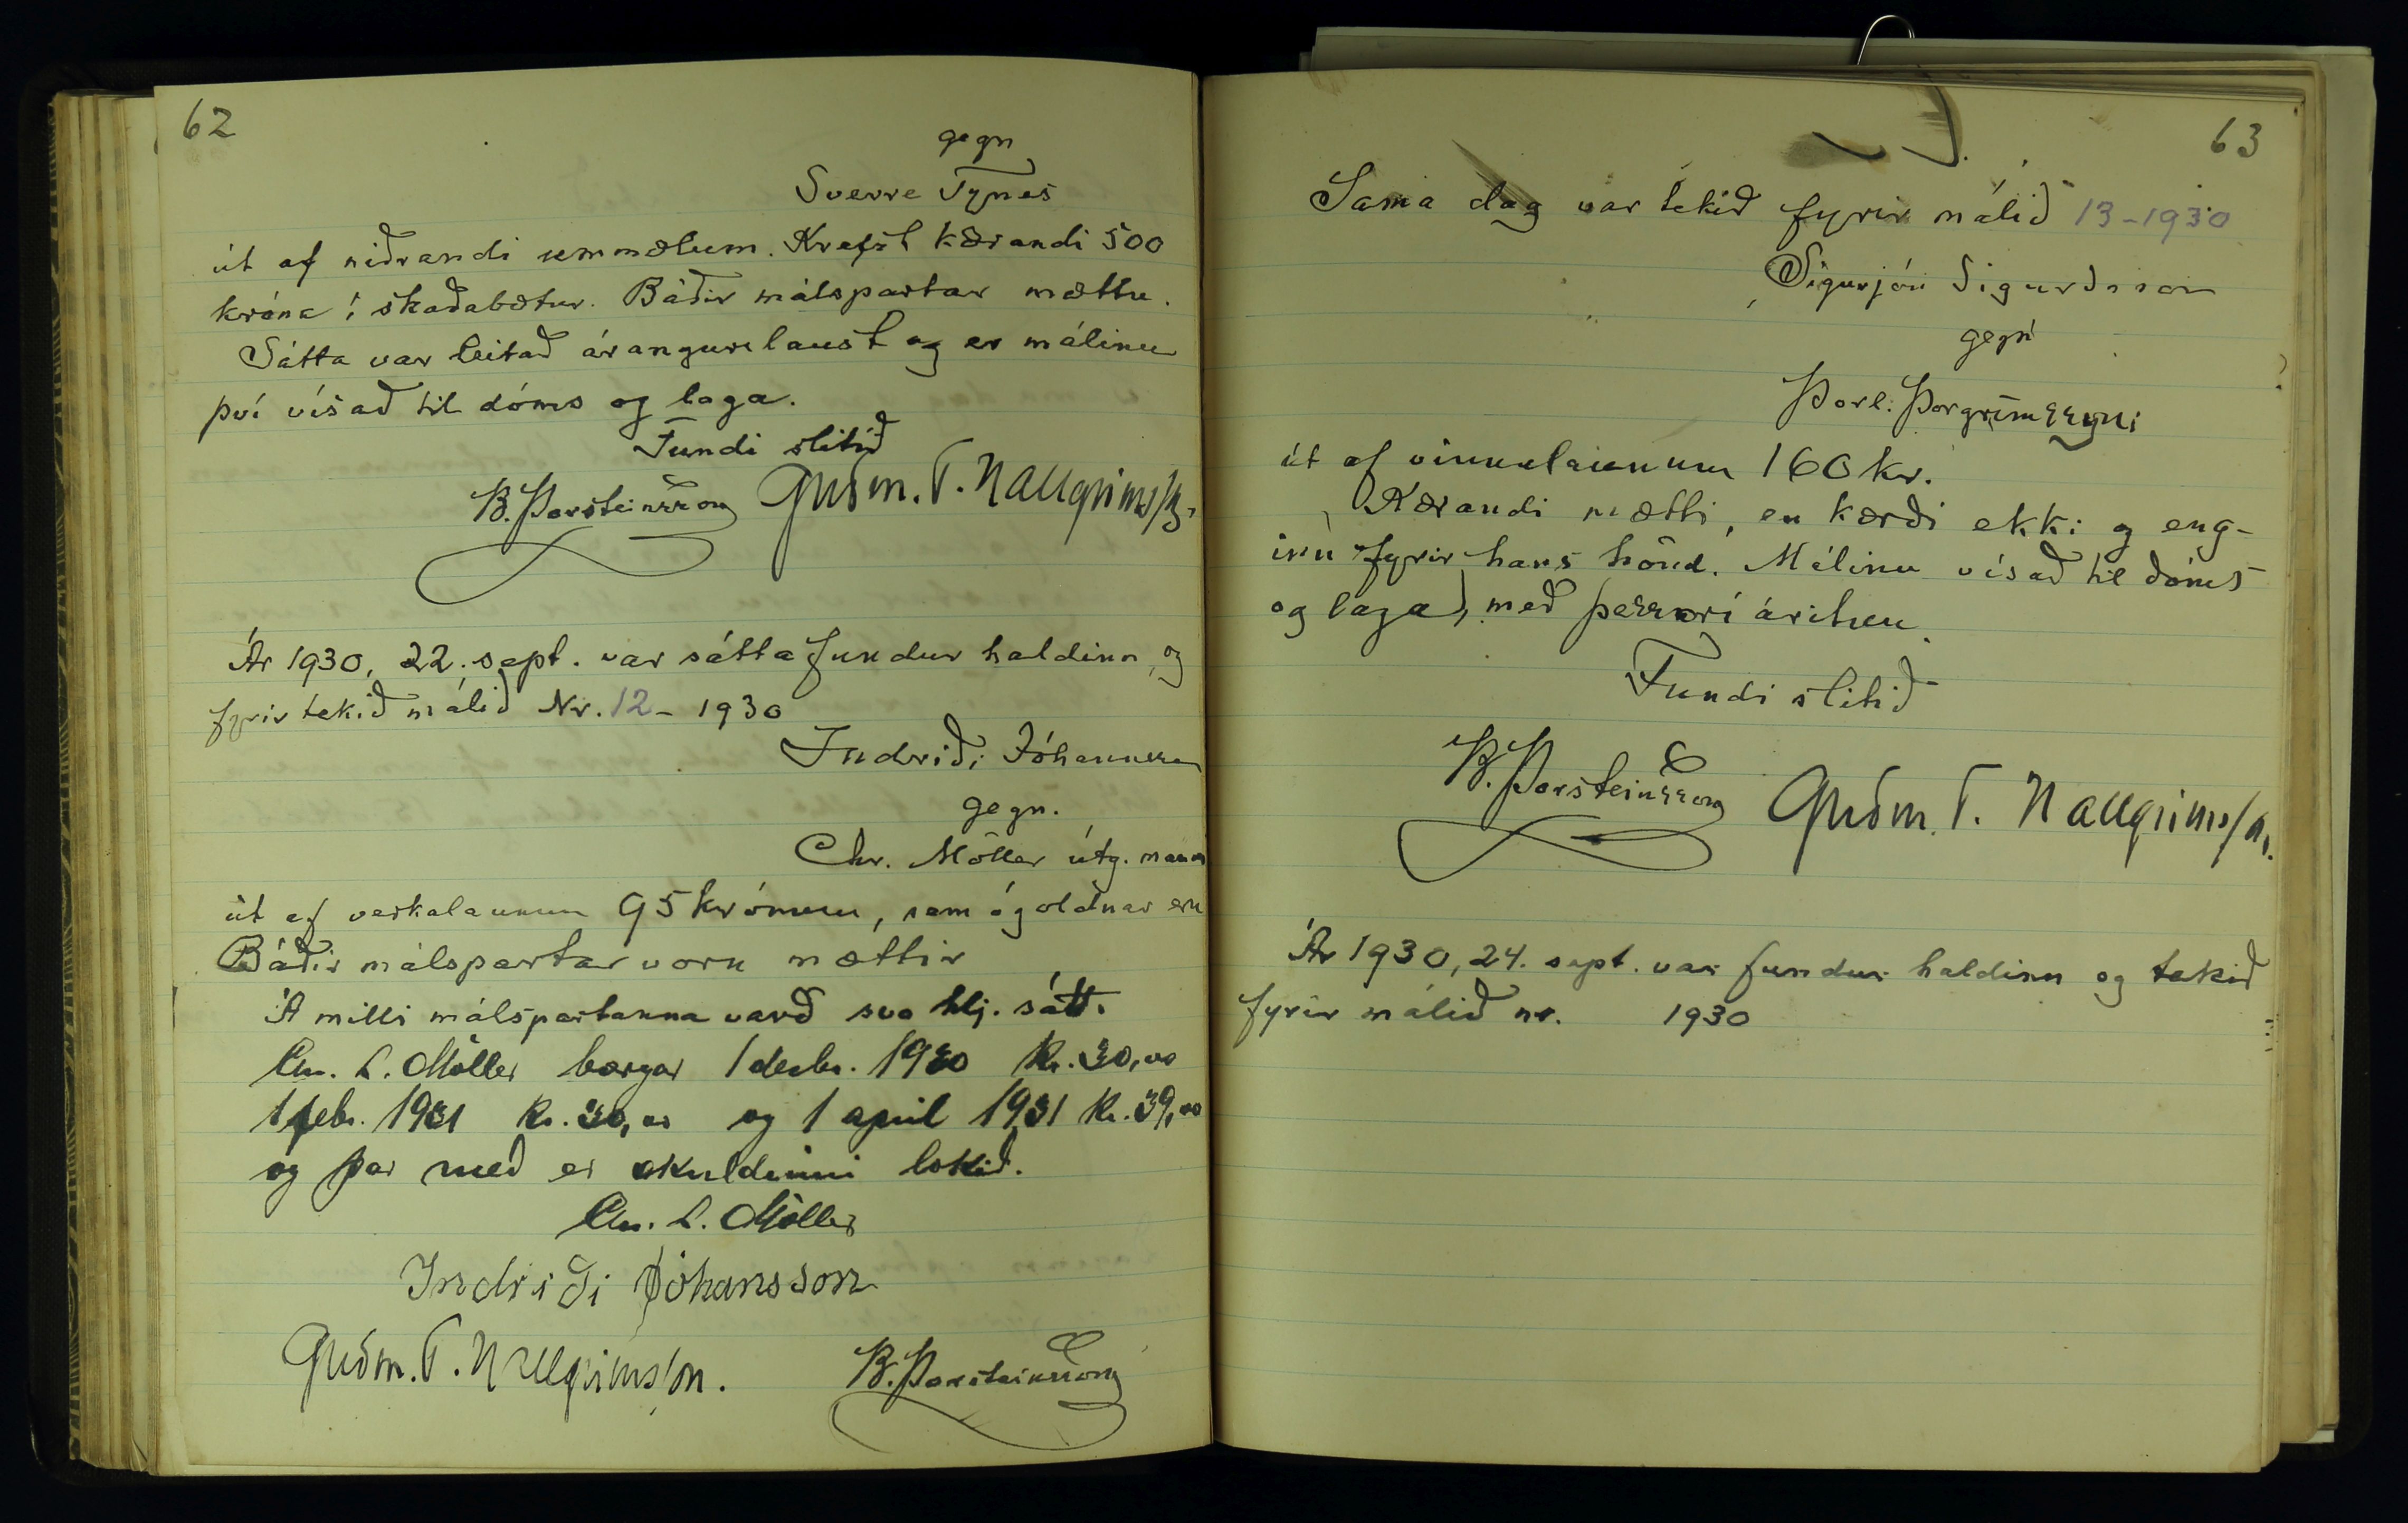 62
gegn
Sverre Tynes
út af niðrandi ummælum. Krefst kærandi 500
króna í skaðabætur. Báðir málspartar mættu.
Sátta var leitað árangurslaust og er málinu
því vísað til dóms og laga.
Fundi slitið
B. Þorsteinsson Guðm. T. Hallgrímss.
Ár 1930, 22. sept. var sáttafundur haldinn, og
fyrirtekið málið Nr. 12-1930
Indriði Jóhannsson
gegn.
Chr. Möller útg. mann
út af verkalaunum 95 krónum, sem ógoldnar eru
Báðir málspartar voru mættir
Á milli málspartanna varð svo hlj. sátt.
Chr. L. Möller borgar 1 desbr. 1930 Kr. 30,00
1 febr. 1931 Kr. 30,00 og 1 apríl 1931 Kr. 39,00
og þar með er skuldinni lokið.
Chr. L. Möller
Indriði Jóhansson
Guðm. T. Hallgrímsson. B. Þorsteinsson
63
Sama dag var tekið fyrir málið 13-1930
Sigurjón Sigurðsson
gegn
Þorl. Þorgrímssyni
út af vinnulaunum 160 kr.
Kærandi mætti, en kærði ekki og eng-
inn fyrir hans hönd. Málinu vísað til dóms
og laga, með þessari áritun.
Fundi slitið
B. Þorsteinsson Guðm. T. Hallgrímss.
Ár 1930, 24. sept. var fundur haldinn og tekið
fyrir málið nr. 1930